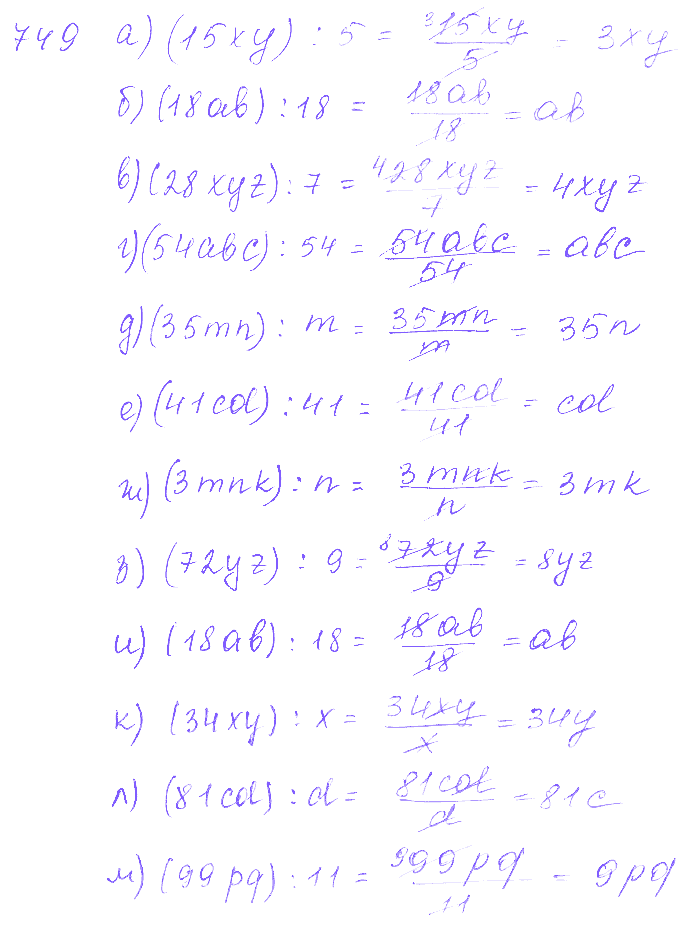 749 а) (15xy) : 5 = ³15xy/5 = 3xy
б) (18ab) : 18 = 18ab/18 = ab
в) (28xyz) : 7 = ⁴28xyz/7 = 4xyz
г) (54abc) : 54 = 54abc/54 = abc
д) (35mn) : m = 35mn/m = 35n
е) (41cd) : 41 = 41cd/41 = cd
ж) (3mnk) : n = 3mnk/n = 3mk
з) (72yz) : 9 = ⁸72yz/9 = 8yz
и) (18ab) : 18 = 18ab/18 = ab
к) (34xy) : x = 34xy/x = 34y
л) (81cd) : d = 81cd/d = 81c
м) (99pq) : 11 = ⁹99pq/11 = 9pq